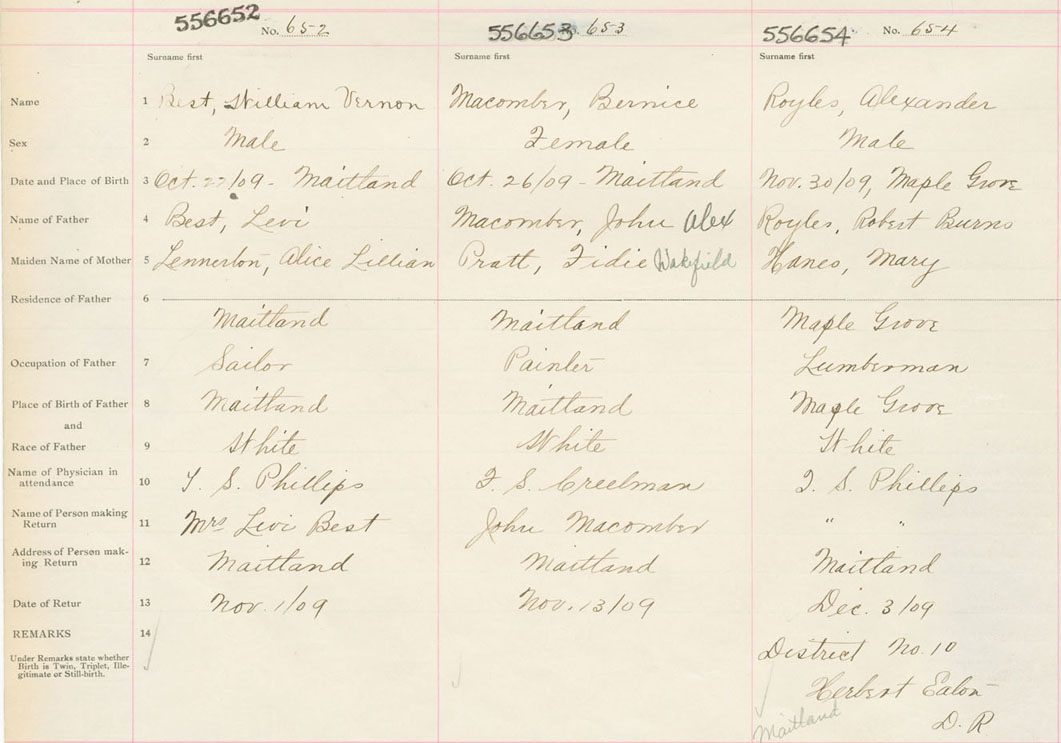 556652 No. 652 556653 653 556654 No. 654
Surname first Surname first Surname first
Name 1 Best, William Vernon Macomber, Bernice Royles, Alexander
Sex 2 Male Female Male
Date and Place of Birth 3 Oct. 22/09 - Maitland Oct. 26/09 - Maitland Nov. 30/09, Maple Grove
Name of Father 4 Best, Levi Macomber, John Alex Royles, Robert Burns
Maiden Name of Mother 5 Lennerton, Alice Lillian Pratt, Fidie Wakefield Hanes, Mary
Residence of Father 6
Maitland Maitland Maple Grove
Occupation of Father 7 Sailor Painter Lumberman
Place of Birth of Father 8 Maitland Maitland Maple Grove
and
Race of Father 9 White White White
Name of Physician in
attendance 10 T. S. Phillips F. S. Creelman T. S. Phillips
Name of Person making
Return 11 Mrs Levi Best John Macomber " "
Address of Person mak-
ing Return 12 Maitland Maitland Maitland
Date of Retur 13 Nov. 1/09 Nov. 13/09 Dec. 3/09
REMARKS 14
Under Remarks state whether
Birth is Twin, Triplet, Ille-
gitimate or Still-birth.
District No. 10
Herbert Eaton
D. R
Maitland